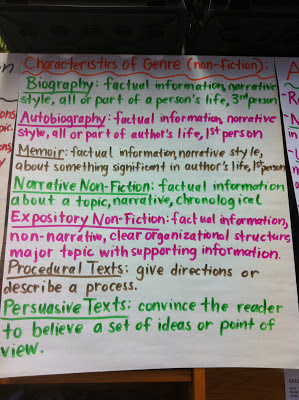 Characteristics of Genre (non-fiction).
Biography: factual information, narrative
style, all or part of a person's life, 3rd person
Autobiography: factual information, narrative
style, all or part of author's life, 1st person
Memoir: factual information, narrative style,
about something significant in author's life, 1st person
Narrative Non-Fiction: factual information
about a topic, narrative, chronological
Expository Non-Fiction: factual information,
non-narrative, clear organizational structure,
major topic with supporting information.
Procedural Texts: give directions or
describe a process.
Persuasive Texts: convince the reader
to believe a set of ideas or point of
view.